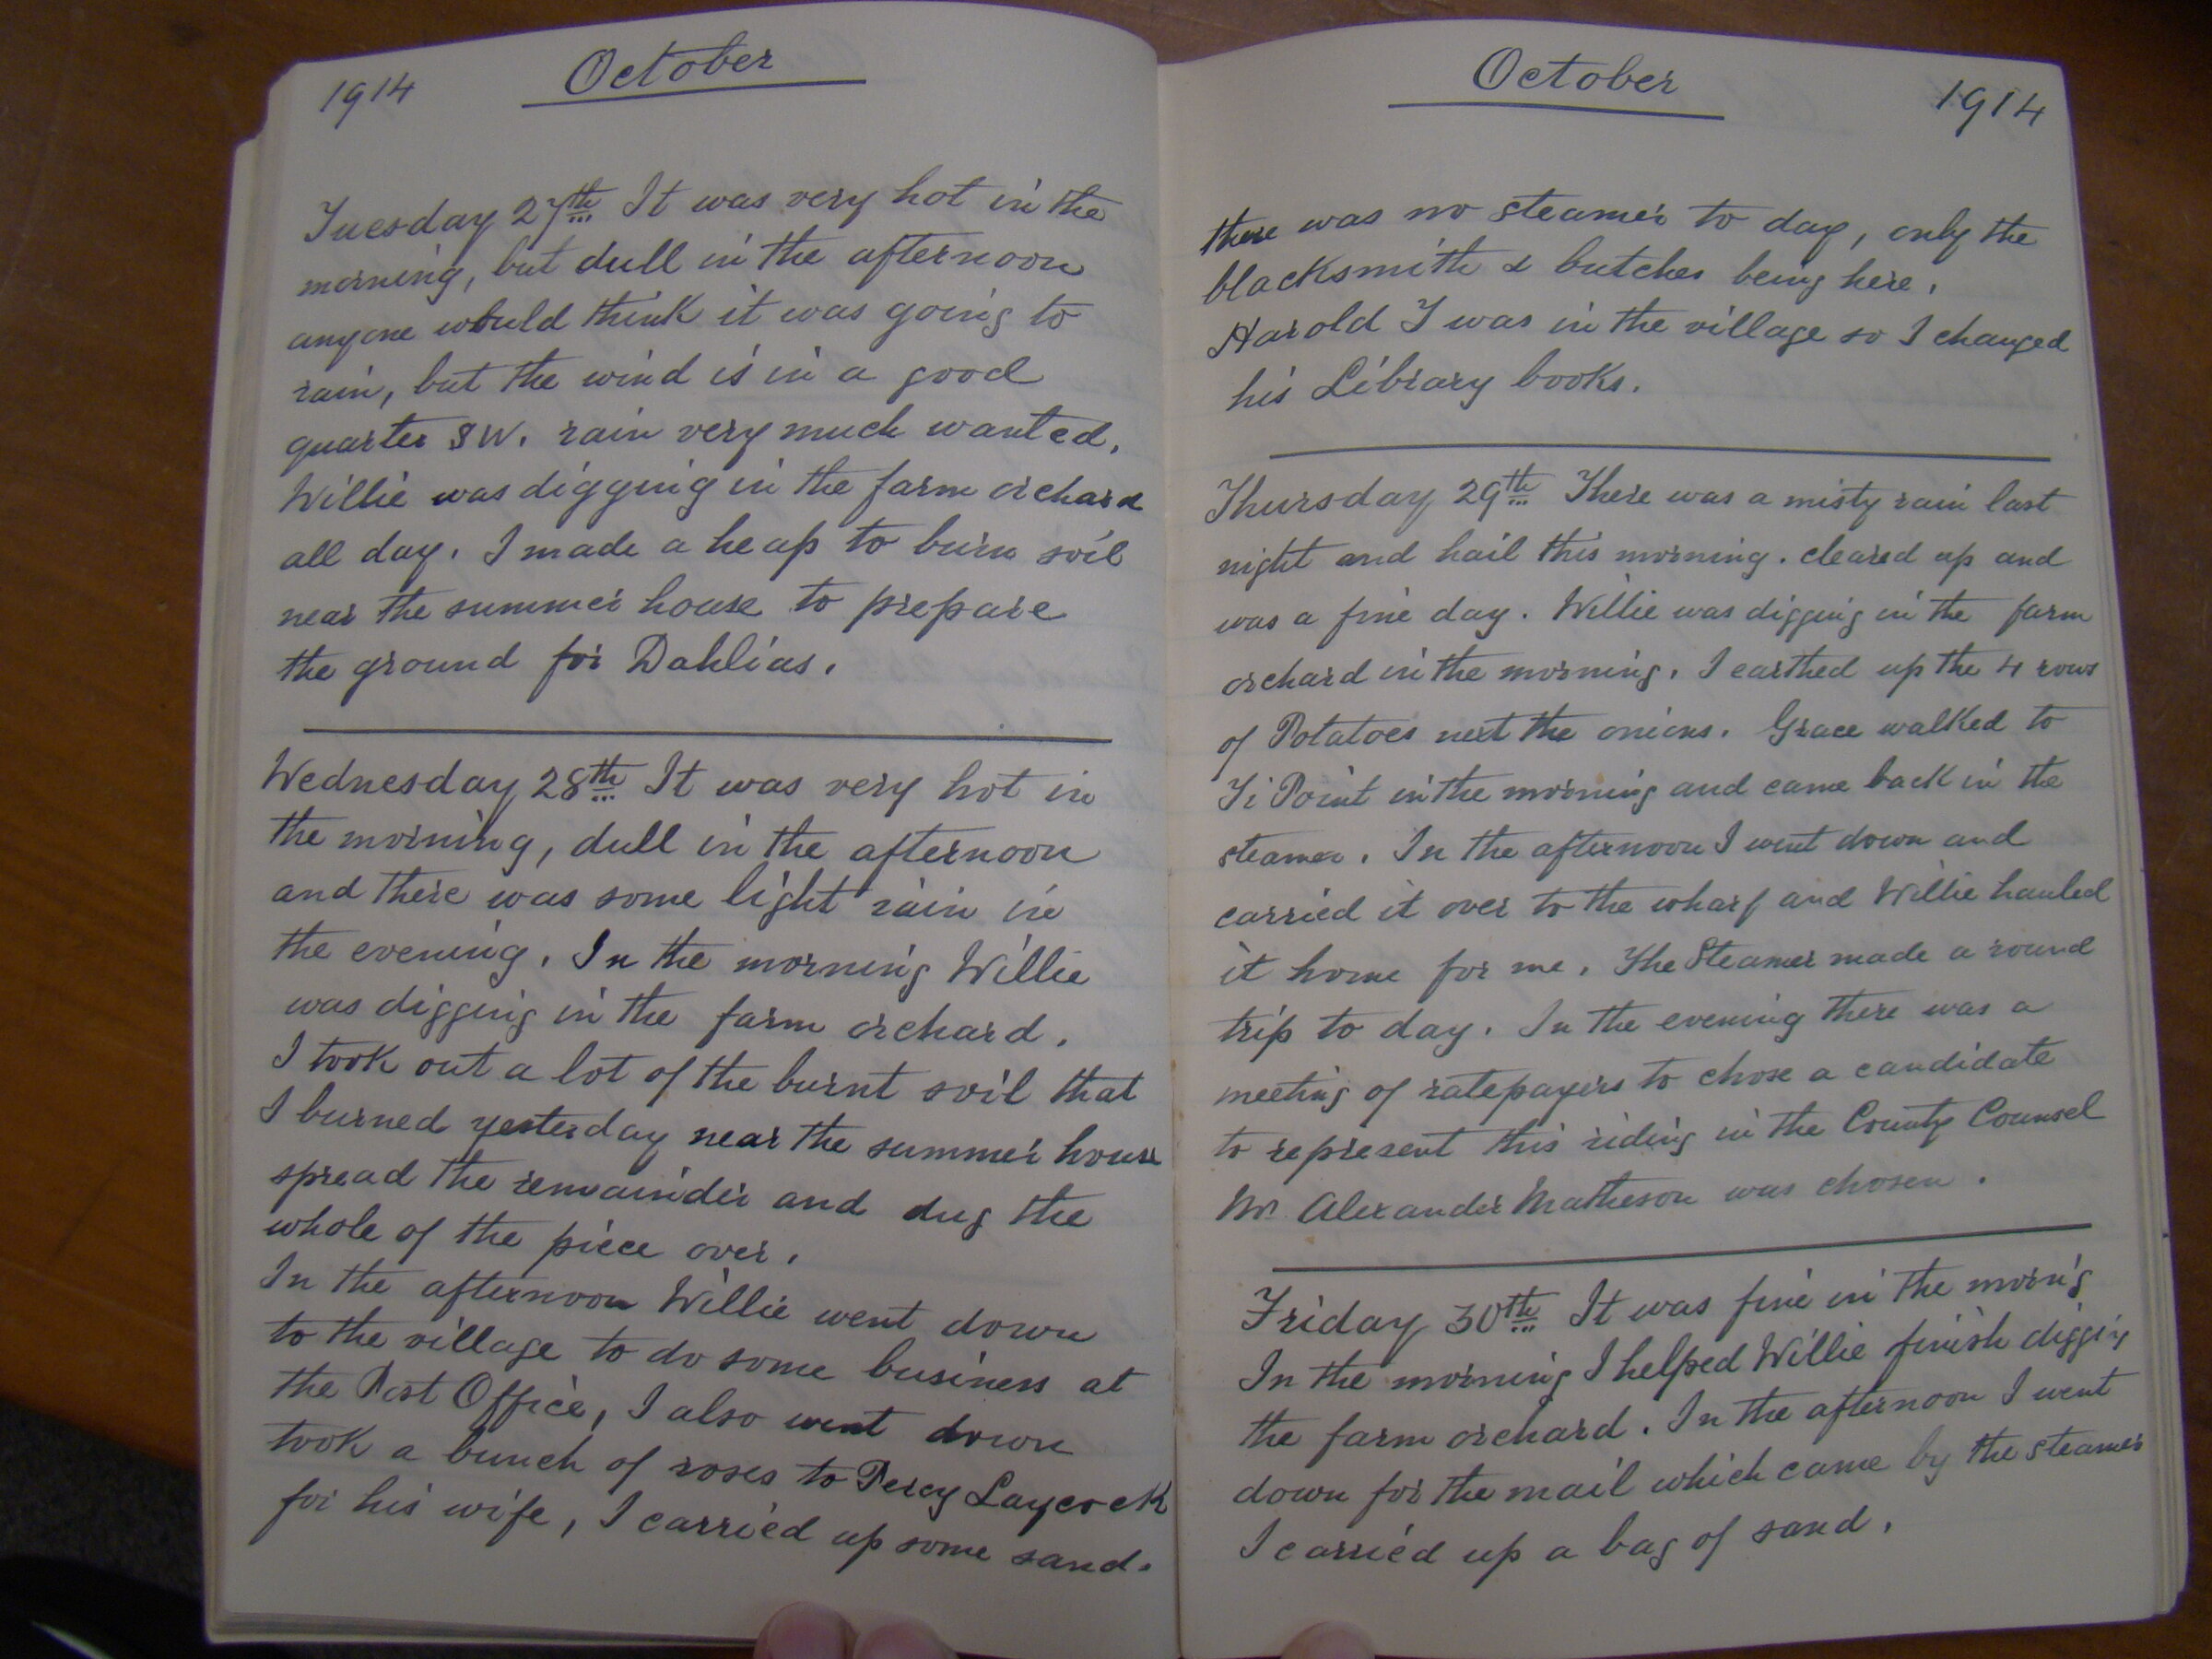 1914 October
Tuesday 27th It was very hot in the
morning, but dull in the afternoon
anyone would think it was going to
rain, but the wind is in a good
quarter SW. rain very much wanted.
Willie was digging in the farm orchard
all day. I made a heap to burn soil
near the summer house to prepare
the ground for Dahlias.
Wednesday 28th It was very hot in
the morning, dull in the afternoon
and there was some light rain in
the evening. In the morning Willie
was digging in the farm orchard.
I took out a lot of the burnt soil that
I burned yesterday near the summer house
spread the remainder and dug the
whole of the piece over.
In the afternoon Willie went down
to the village to do some business at
the Post Office, I also went down
took a bunch of roses to Percy Laycock
for his wife, I carried up some sand.
October 1914
there was no steamer to day, only the
blacksmith & butcher being here.
Harold I was in the village so I changed
his Library books.
Thursday 29th There was a misty rain last
night and hail this morning. cleared up and
was a fine day. Willie was digging in the farm
orchard in the morning. I earthed up the 4 rows
of Potatoes next the onions. Grace walked to
Ti Point in the morning and came back in the
steamer. In the afternoon I went down and
carried it over to the wharf and Willie hauled
it home for me. The Steamer made a round
trip to day. In the evening there was a
meeting of ratepayers to chose a candidate
to represent this riding in the County Counsel
Mr Alexander Matheson was chosen.
Friday 30th It was fine in the morn'g
In the morning I helped Willie finish digging
the farm orchard. In the afternoon I went
down for the mail which came by the steamer
I carried up a bag of sand.